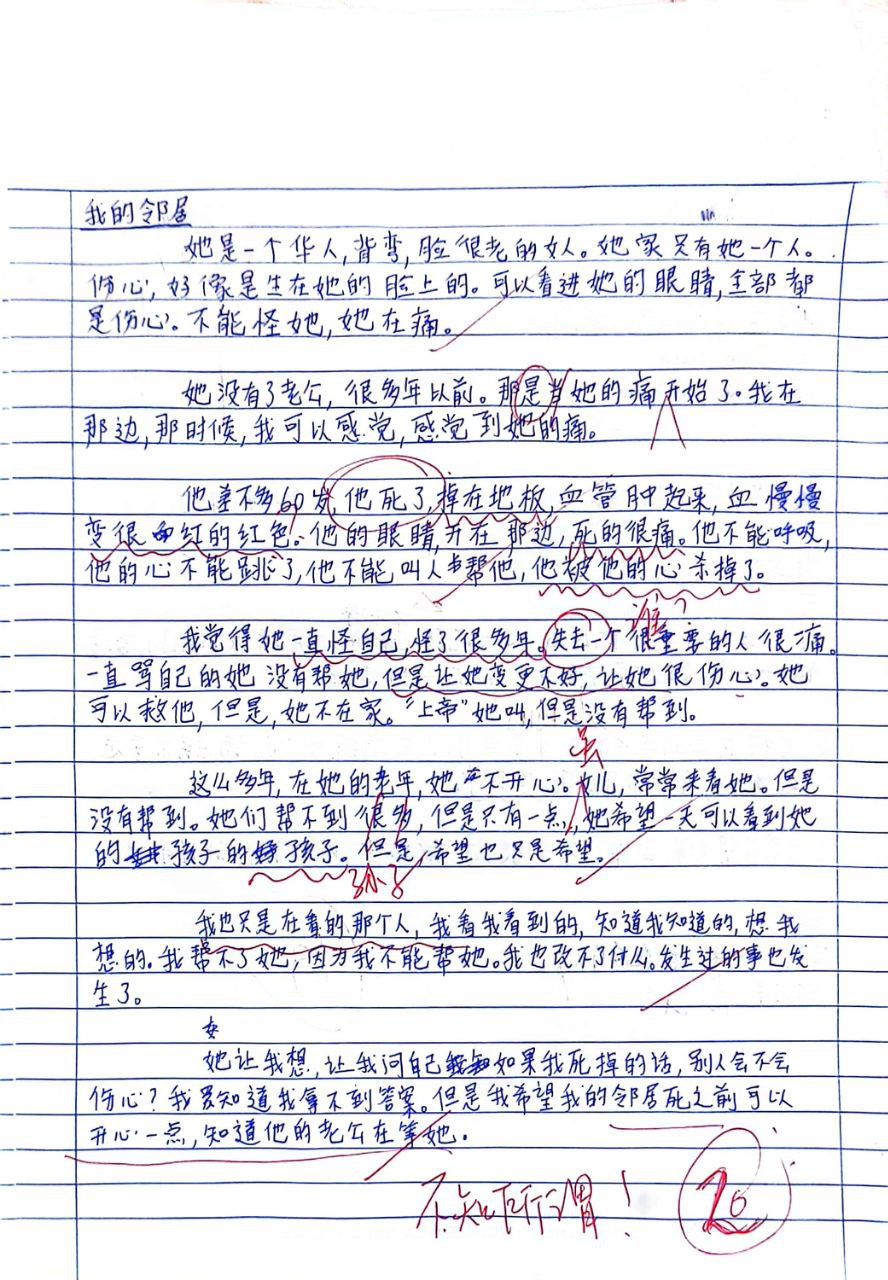 我的邻居
她是一个华人,背弯,脸很老的女人。她家只有她一个人。
伤心,好像是生在她的脸上的。可以看进她的眼睛,全部都
是伤心。不能怪她,她在痛。
她没有了老公,很多年以前。那是当她的痛开始了。我在
那边,那时候,我可以感觉,感觉到她的痛。
他差不多60岁,他死了,掉在地板,血管肿起来,血慢慢
变很 红的红色。他的眼睛,开在那边,死的很痛。他不能呼吸,
他的心不能跳了,他不能叫人 帮他,他被他的心杀掉了。
谁?
我觉得她一直怪自己,怪了很多年。失去一个很重要的人很痛。
一直骂自己的她没有帮她,但是让她变更不好,让她很伤心。她
可以救他,但是,她不在家。“上帝”她叫,但是没有帮到。
这么多年,在她的老年,她 不开心。女儿,常常来看她。但是
没有帮到。她们帮不到很多,但是只有一点,她希望一天可以看到她
的 孩子的 孩子。但是,希望也只是希望。
我也只是在看的那个人,我看我看到的,知道我知道的,想我
想的。我帮不了她,因为我不能帮她。我也改不了什么。发生过的事也发
生了。
她让我想,让我问自己 如果我死掉的话,别人会不会
伤心?我 知道我拿不到答案。但是我希望我的邻居死之前可以
开心一点,知道他的老公在等她。
不知所谓!
20